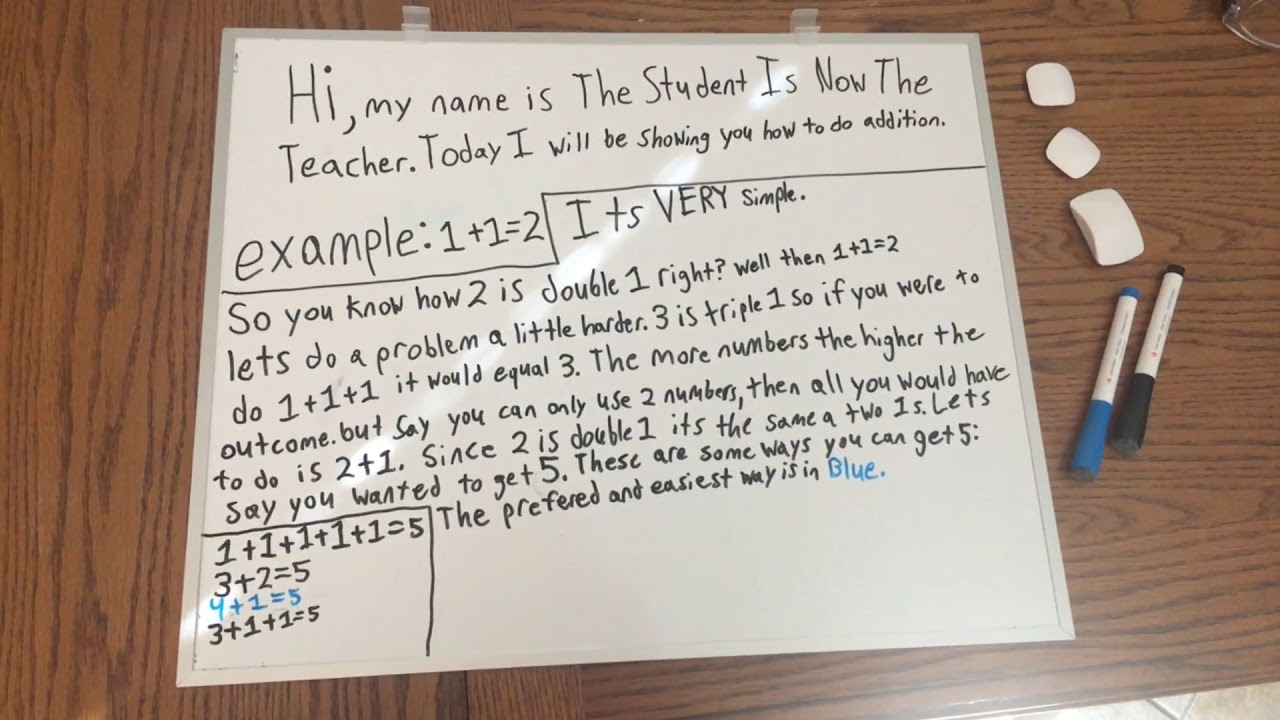 Hi, my name is The Student Is Now The
Teacher. Today I will be showing you how to do addition.
example: 1+1=2
Its VERY simple.
So you know how 2 is double 1 right? well then 1+1=2
lets do a problem a little harder. 3 is triple 1 so if you were to
do 1+1+1 it would equal 3. The more numbers the higher the
outcome. but say you can only use 2 numbers, then all you would have
to do is 2+1. Since 2 is double 1 its the same a two 1s. Lets
say you wanted to get 5. These are some ways you can get 5:
The prefered and easiest way is in Blue.
1+1+1+1+1=5
3+2=5
4+1=5
3+1+1=5